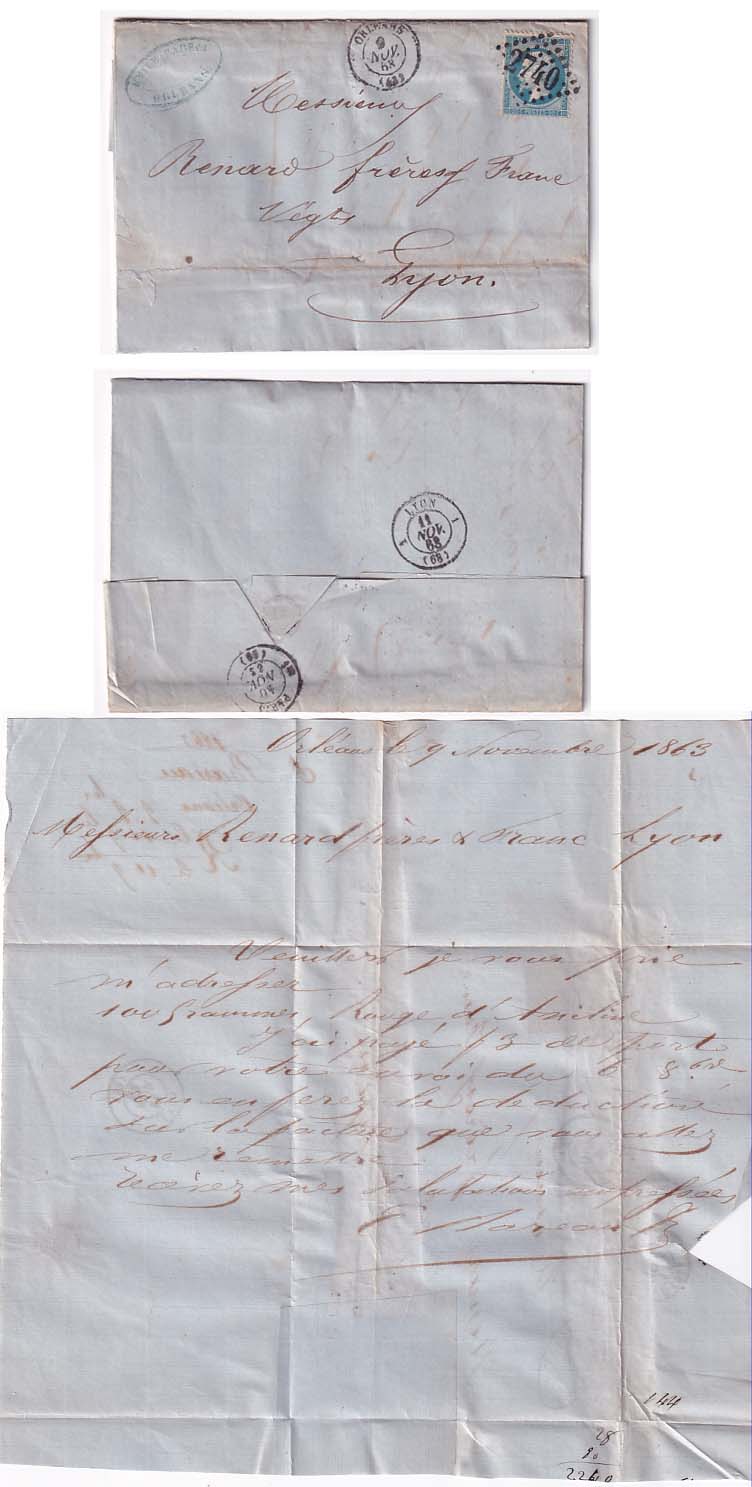 ORLEANS
ORLEANS
9
NOV.
63
(43)
2740
Messieurs
Renard frères & Franc
Négts
Lyon.
LYON
1 1
11
NOV.
63
(68)
PARIS
10
NOV.
63
(60)
Orléans le 9 Novembre 1863
Messieurs Renard frères & Franc Lyon
Veuillez je vous prie
m'adresser
100 Grammes, Rouge d'Aniline
J'ai payé f3 de port
pour votre envoi du 6 8bre
vous en ferez la déduction
sur la facture que vous allez
me remettre
Recevez mes salutations empressées
144
28
80
2240